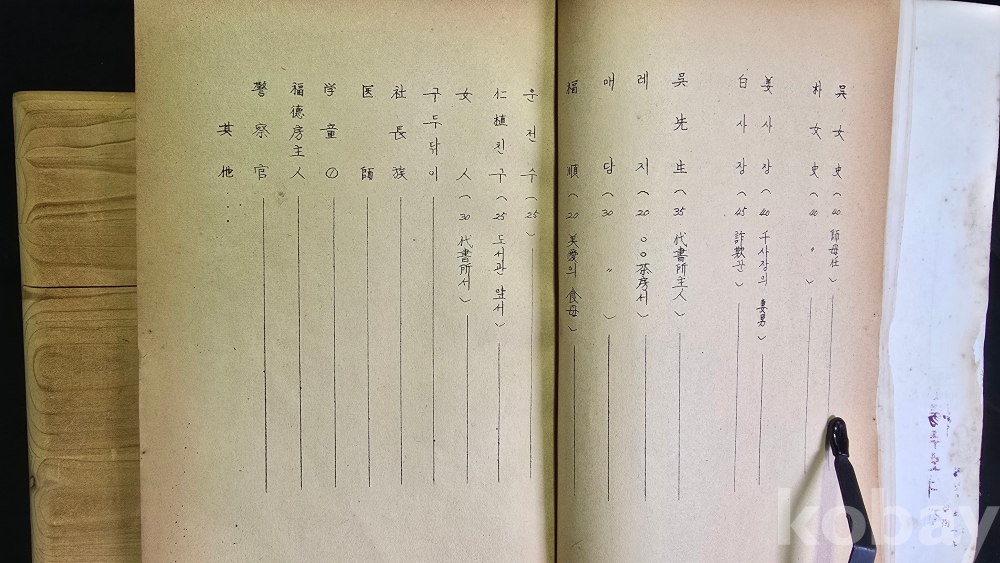 吳女史 (40 師母任)
朴女史 (40 〃 )
姜사장 (40 千사장의 妻男)
白사장 (45 詐欺꾼)
吳先生 (35 代書所主人)
레지 (20 ○○茶房서)
매담 (30 〃 )
福順 (20 美愛의 食母)
운전수 (25)
仁植친구 (25 도서관 앞서)
女人 (30 代書所서)
구두닦이
社長族
医師
学童①
福德房主人
警察官
其他…
kobay